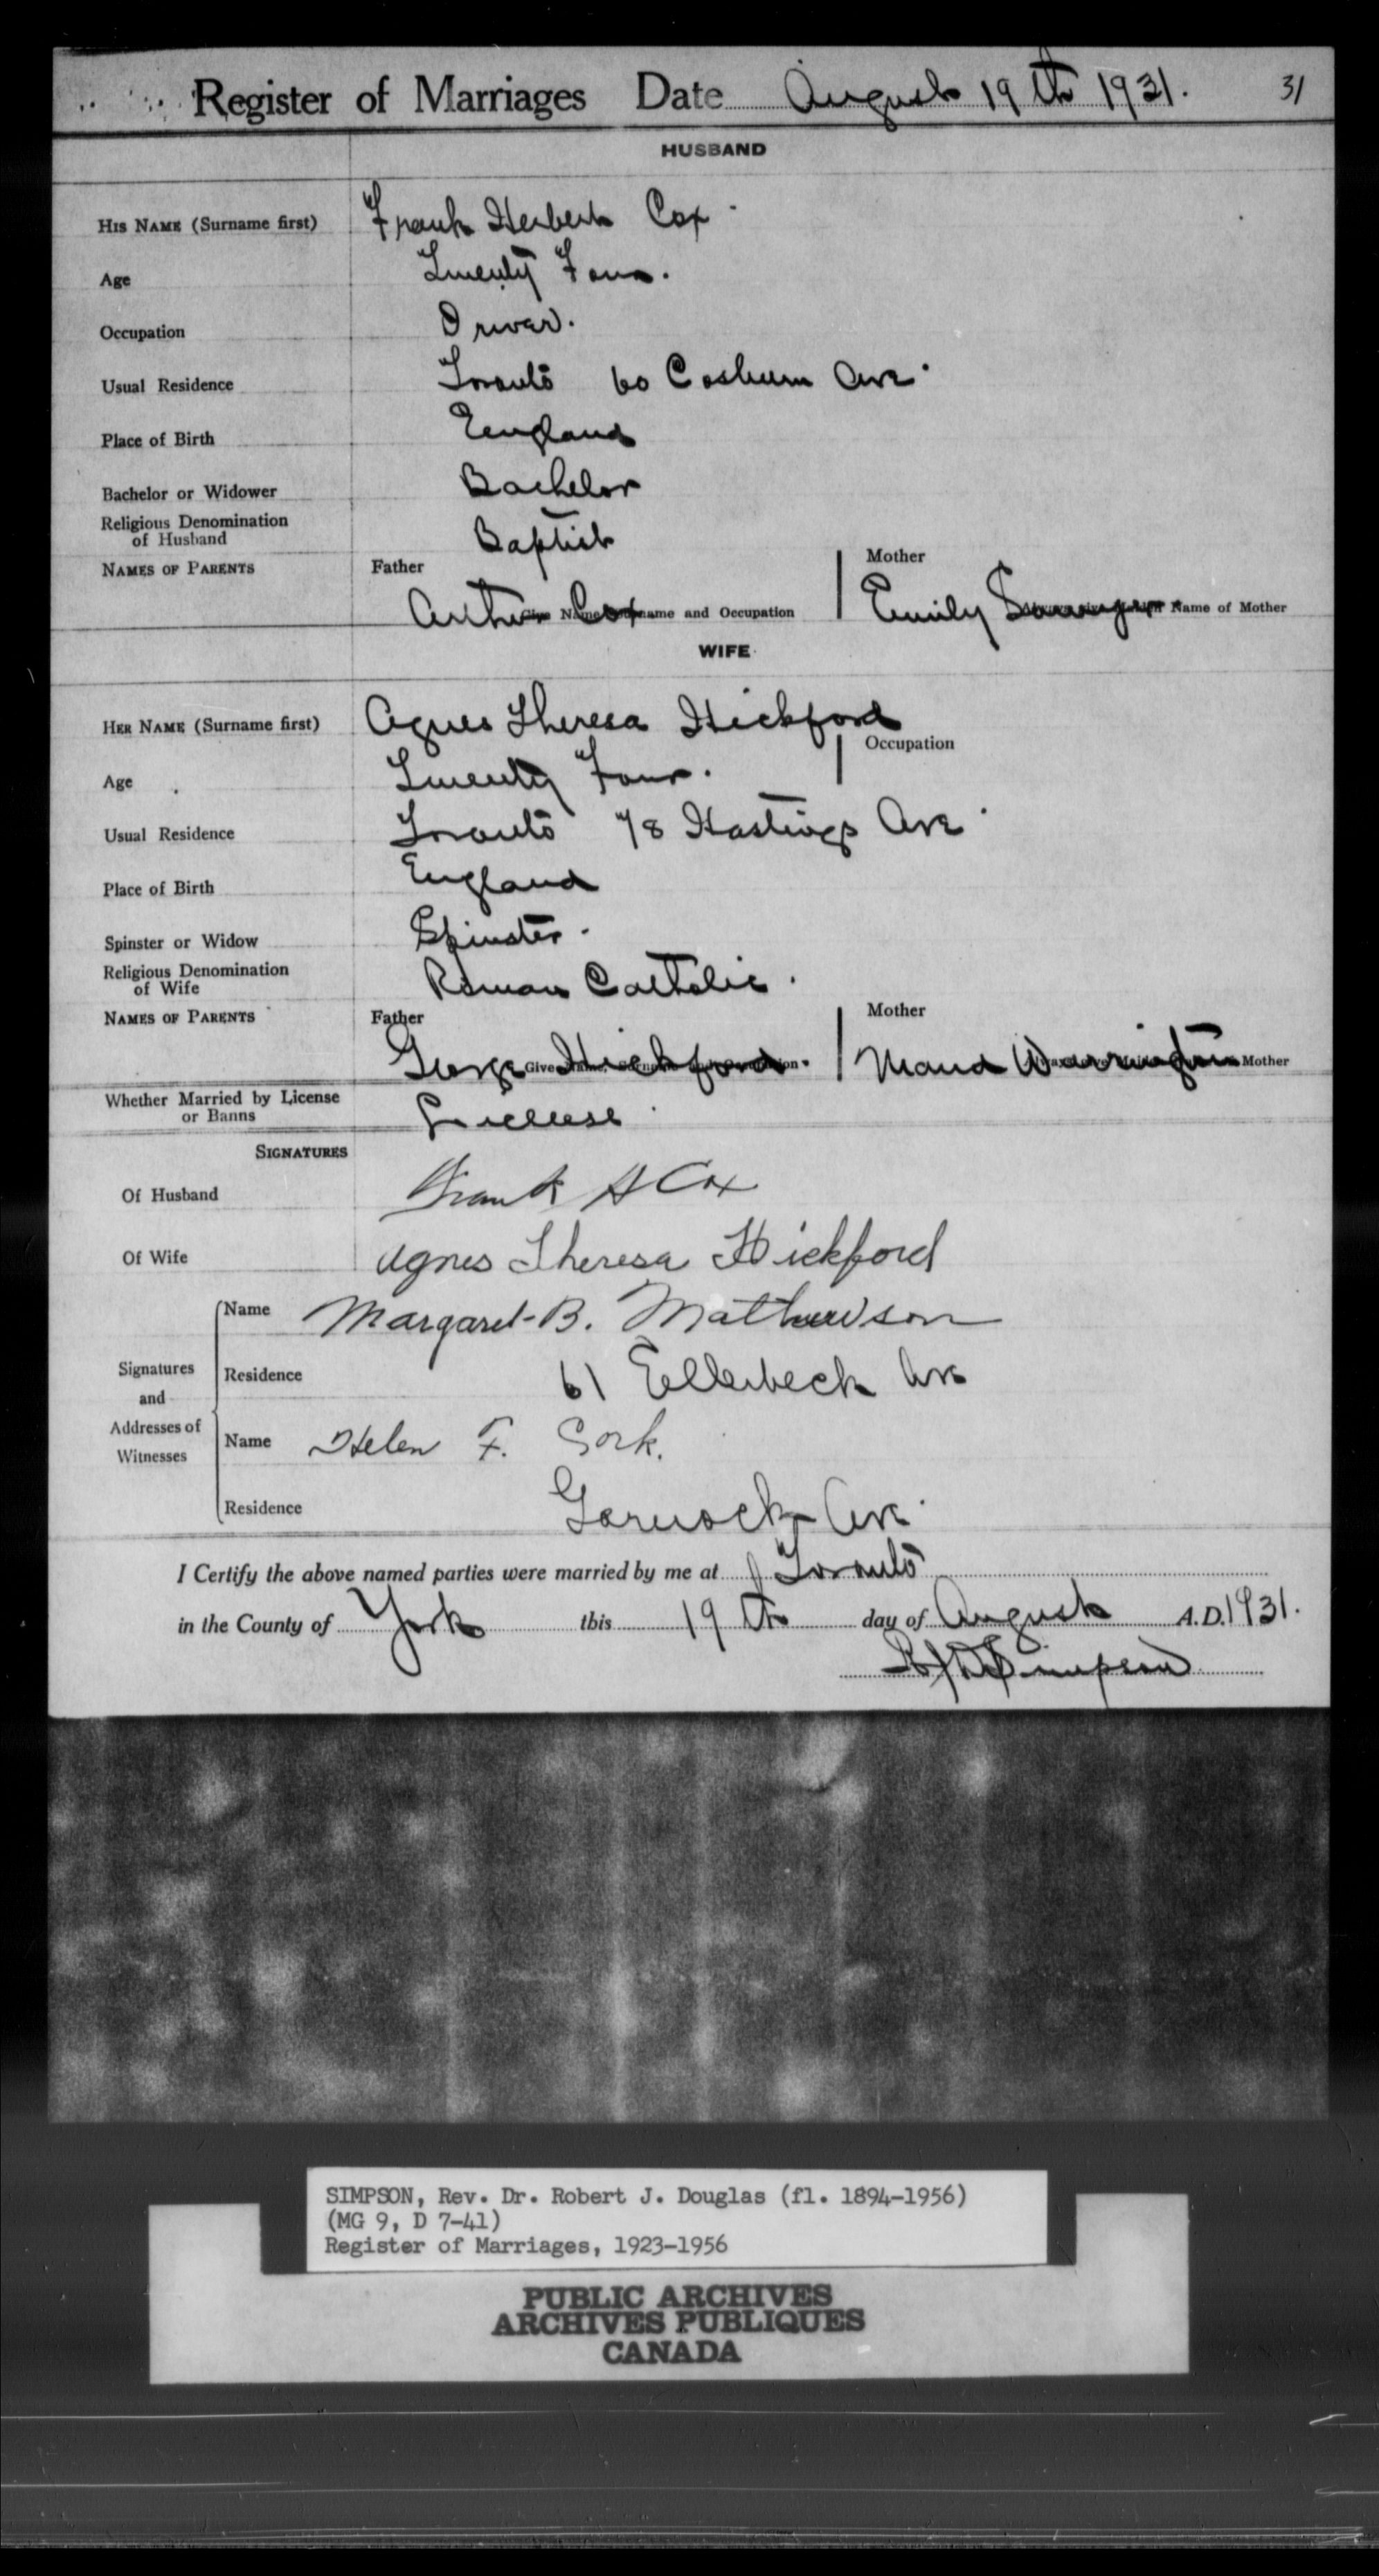 Register of Marriages Date August 19th 1931. 31
HUSBAND
HIS NAME (Surname first) Frank Herbert Cox
Age Twenty Four.
Occupation Driver.
Usual Residence Toronto 60 Cosburn Ave.
Place of Birth England
Bachelor or Widower Bachelor
Religious Denomination
of Husband Baptist
NAMES OF PARENTS Father Mother
Arthur Cox Emily
Give Name, Surname and Occupation Name of Mother
WIFE
HER NAME (Surname first) Agnes Theresa Hickford
Occupation
Age Twenty Four.
Usual Residence Toronto 78 Hastings Ave.
Place of Birth England
Spinster or Widow Spinster.
Religious Denomination
of Wife Roman Catholic.
NAMES OF PARENTS Father Mother
George Hickford. Maud Warrington
Give Name, Surname and Occupation Mother
Whether Married by License
or Banns License
SIGNATURES
Of Husband Frank H Cox
Of Wife Agnes Theresa Hickford
Name Margaret B. Mathewson
Signatures
and
Addresses of
Witnesses
Residence 61 Ellerbeck Ave
Name Helen F.
Residence Garnock Ave.
I Certify the above named parties were married by me at Toronto
in the County of York this 19th day of August A.D. 1931.
R J D Simpson
SIMPSON, Rev. Dr. Robert J. Douglas (fl. 1894-1956)
(MG 9, D 7-41)
Register of Marriages, 1923-1956
PUBLIC ARCHIVES
ARCHIVES PUBLIQUES
CANADA